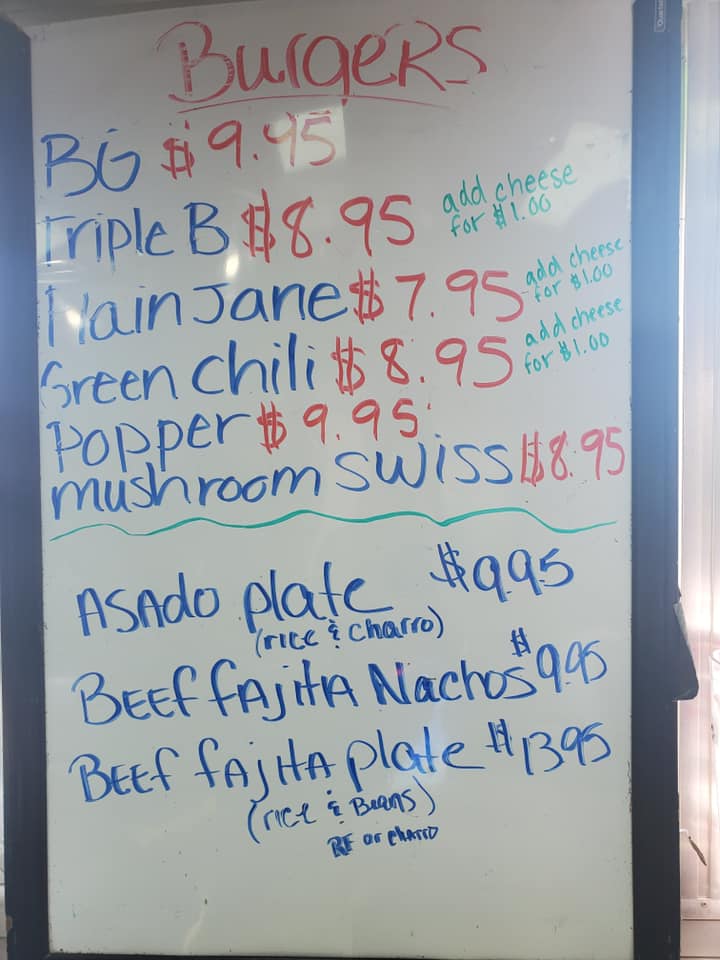 BurgeRS
BG $9.95
Triple B $8.95 add cheese for $1.00
Plain Jane $7.95 add cheese for $1.00
Green Chili $8.95 add cheese for $1.00
Popper $9.95
mushroom swiss $8.95
ASAdo plate $9.95
(rice & charro)
BEEf fAjitA Nachos $9.95
BEEf fAjitA plate $13.95
(rice & Beans)
RF or charro